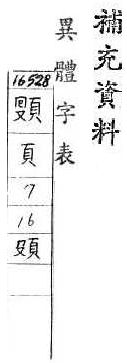 補充資料
異體字表
16528
頁
7
16